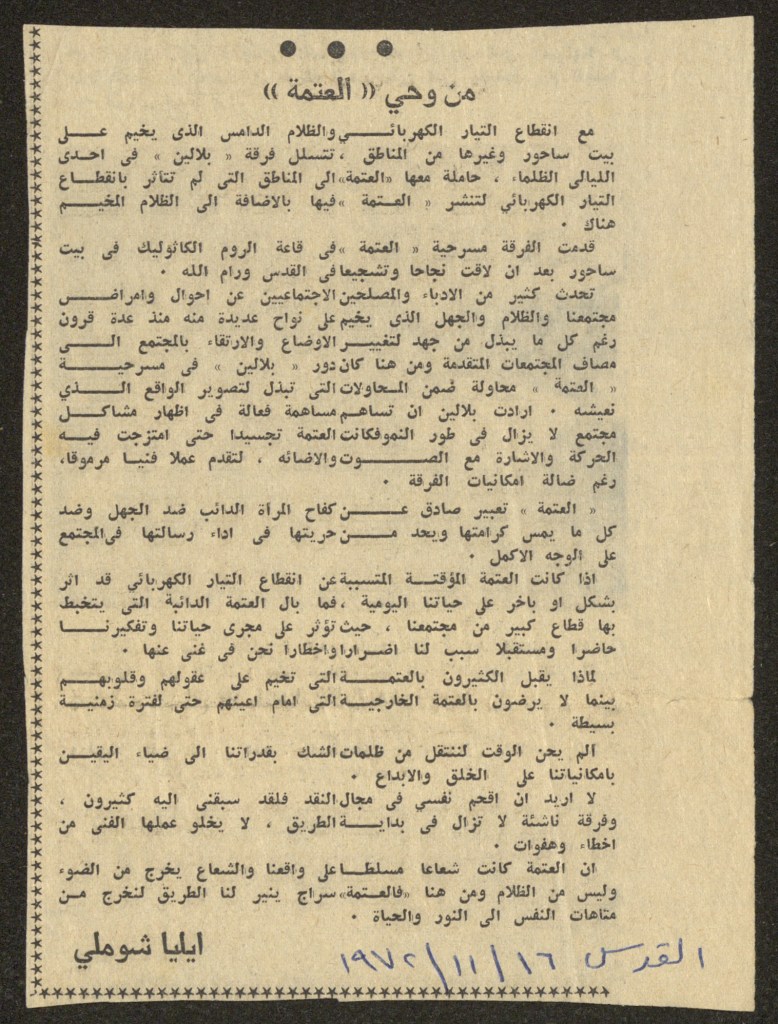 من وحي «العتمة»
مع انقطاع التيار الكهربائي والظلام الدامس الذى يخيم على
بيت ساحور وغيرها من المناطق ، تتسلل فرقة « بلالين » فى احدى
الليالى الظلماء ، حاملة معها «العتمة» الى المناطق التى لم تتأثر بانقطاع
التيار الكهربائي لتنشر « العتمة » فيها بالاضافة الى الظلام المخيم
هناك ٠
قدمت الفرقة مسرحية « العتمة » فى قاعة الروم الكاثوليك فى بيت
ساحور بعد ان لاقت نجاحا وتشجيعا فى القدس ورام الله ٠
تحدث كثير من الادباء والمصلحين الاجتماعيين عن احوال وامراض
مجتمعنا والظلام والجهل الذى يخيم على نواح عديدة منه منذ عدة قرون
رغم كل ما يبذل من جهد لتغيير الاوضاع والارتقاء بالمجتمع الى
مصاف المجتمعات المتقدمة ومن هنا كان دور « بلالين » فى مسرحية
« العتمة » محاولة ضمن المحاولات التى تبذل لتصوير الواقع الذي
نعيشه ٠ ارادت بلالين ان تساهم مساهمة فعالة فى اظهار مشاكل
مجتمع لا يزال فى طور النمو فكانت العتمة تجسيدا حتى امتزجت فيه
الحركة والاشارة مع الصوت والاضائه ، لتقدم عملا فنيا مرموقا،
رغم ضالة امكانيات الفرقة ٠
« العتمة » تعبير صادق عن كفاح المرأة الدائب ضد الجهل وضد
كل ما يمس كرامتها ويحد من حريتها فى اداء رسالتها فى المجتمع
على الوجه الاكمل ٠
اذا كانت العتمة المؤقتة المتسببة عن انقطاع التيار الكهربائي قد اثر
بشكل او باخر على حياتنا اليومية ، فما بال العتمة الدائية التى يتخبط
بها قطاع كبير من مجتمعنا ، حيث تؤثر على مجرى حياتنا وتفكيرنا
حاضرا ومستقبلا سبب لنا اضرارا واخطارا نحن فى غنى عنها ٠
لماذا يقبل الكثيرون بالعتمة التى تخيم على عقولهم وقلوبهم
بينما لا يرضون بالعتمة الخارجية التى امام اعينهم حتى لفترة زمنية
بسيطة ٠
ألم يحن الوقت لننتقل من ظلمات الشك بقدراتنا الى ضياء اليقين
بامكانياتنا على الخلق والابداع ٠
لا اريد ان اقحم نفسي فى مجال النقد فلقد سبقنى اليه كثيرون ،
وفرقة ناشئة لا تزال فى بداية الطريق ، لا يخلو عملها الفنى من
اخطاء وهفوات ٠
ان العتمة كانت شعاعا مسلطا على واقعنا والشعاع يخرج من الضوء
وليس من الظلام ومن هنا «فالعتمة» سراج ينير لنا الطريق لنخرج من
متاهات النفس الى النور والحياة ٠
ايليا شوملي
القدس ١٦/١١/١٩٧٢